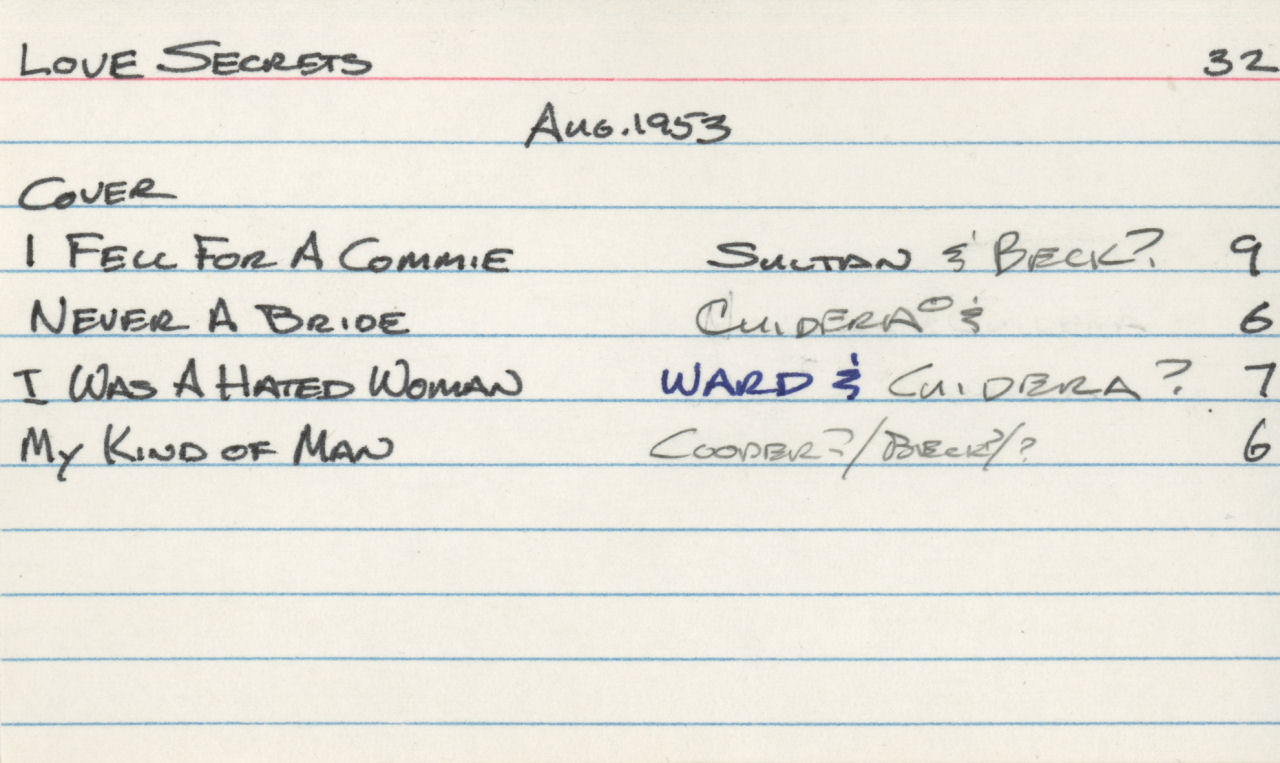 LOVE SECRETS 32
AUG. 1953
COVER
I FELL FOR A COMMIE SULTAN & BECK? 9
NEVER A BRIDE CUIDERA & 6
I WAS A HATED WOMAN WARD & CUIDERA? 7
MY KIND OF MAN COOPER?/BECK?/? 6